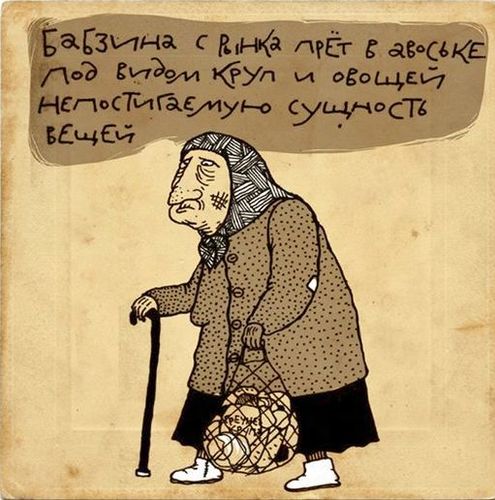 Бабзина с рынка прёт в авоське
под видом круп и овощей
непостигаемую сущность
вещей